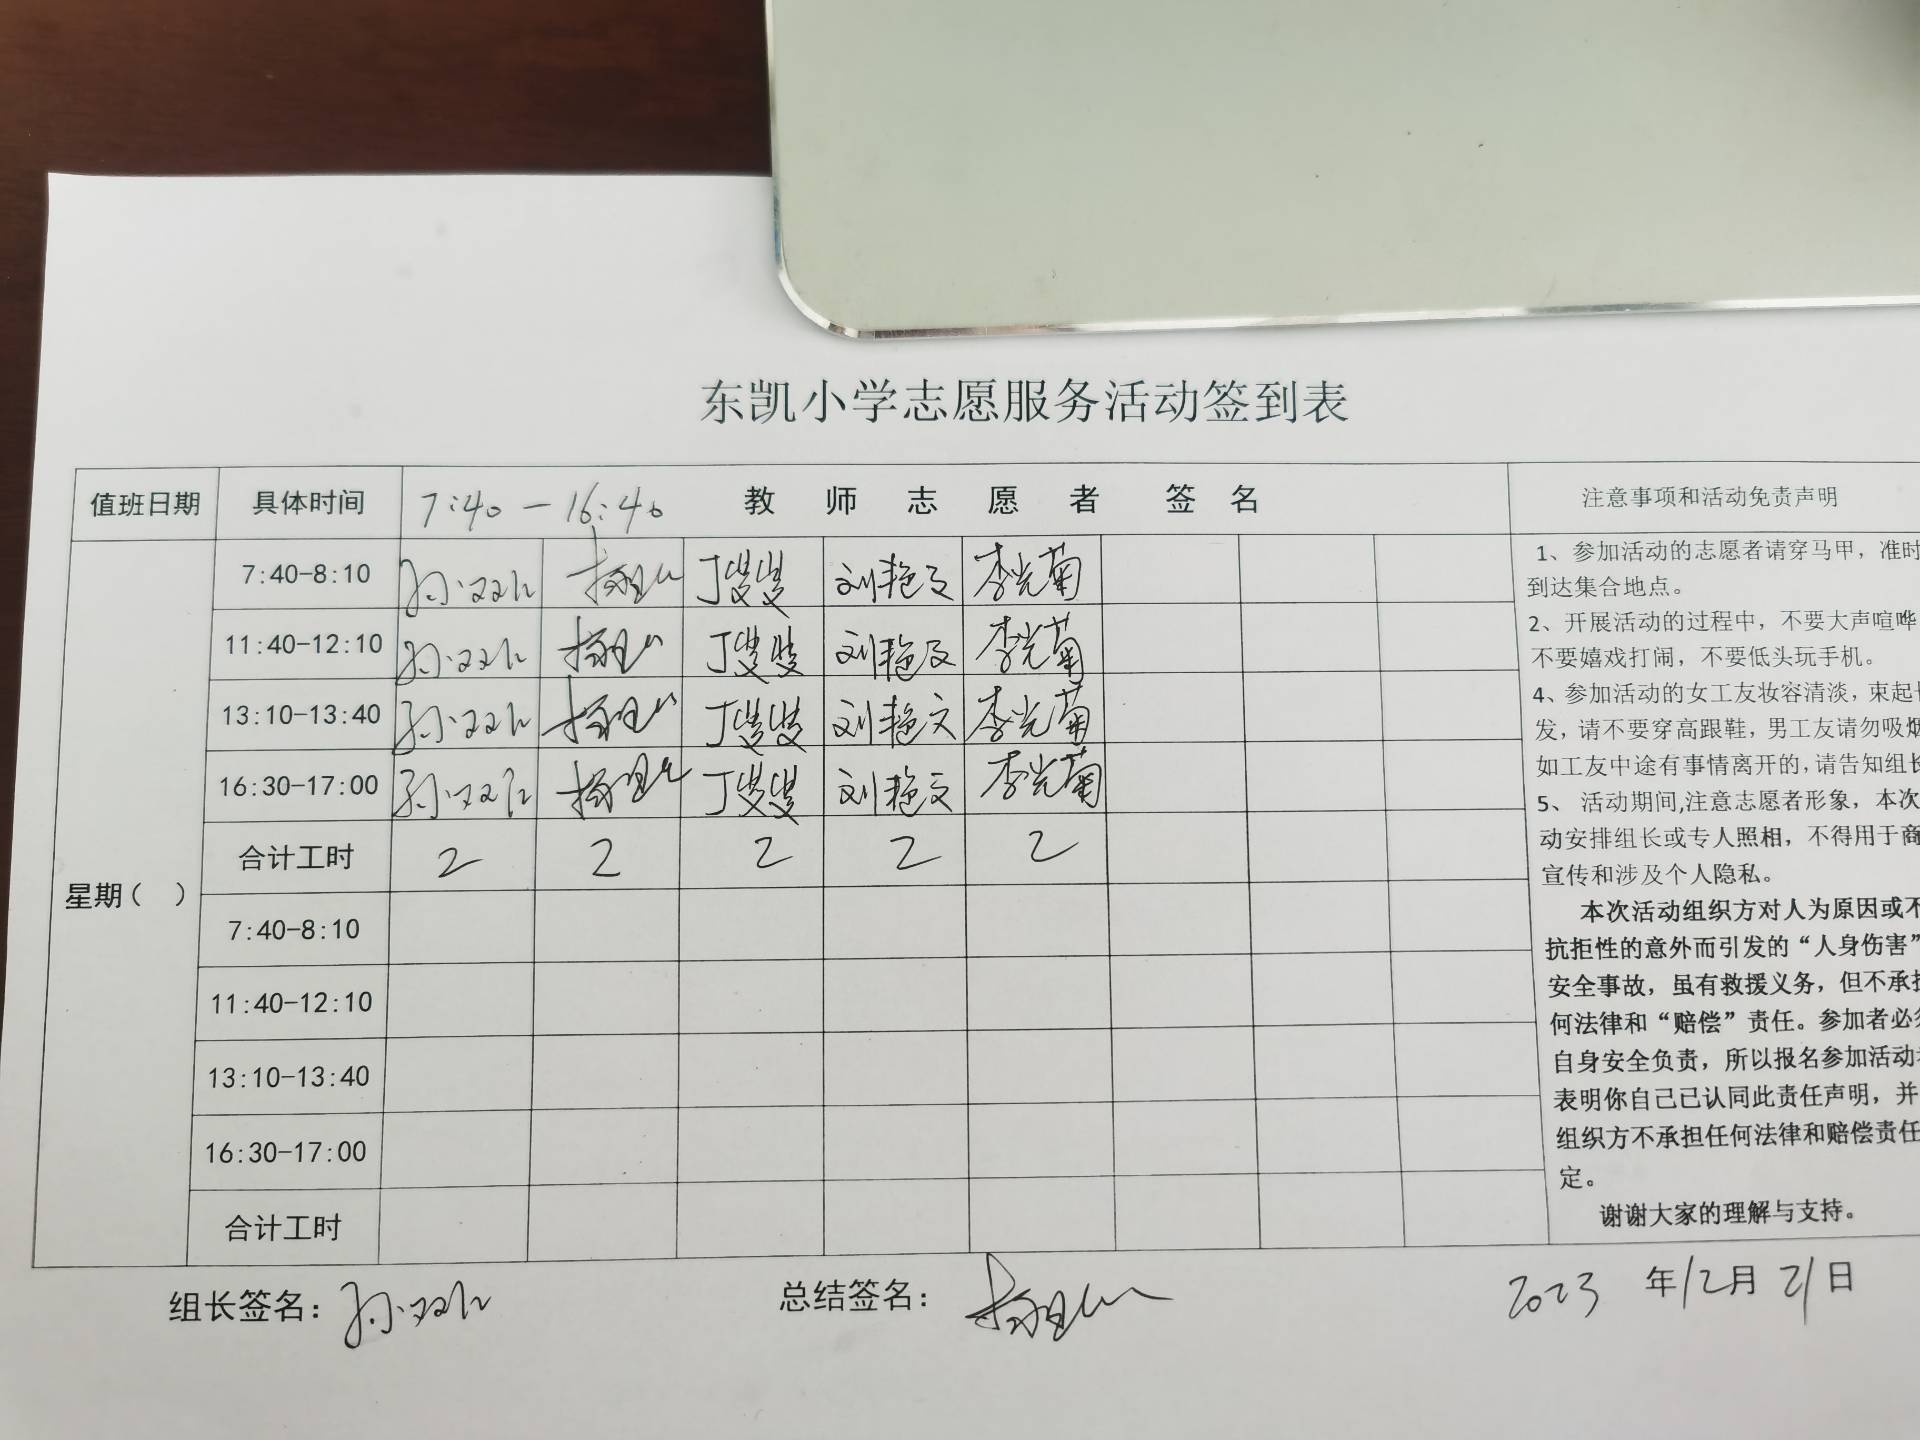 东凯小学志愿服务活动签到表
值班日期 具体时间 7:40-16:40 教师志愿者签名 注意事项和活动免责声明
星期( )
7:40-8:10 孙双江 丁叟叟 刘艳文 李光菊
11:40-12:10 孙双江 丁叟叟 刘艳文 李光菊
13:10-13:40 孙双江 丁叟叟 刘艳文 李光菊
16:30-17:00 孙双江 丁叟叟 刘艳文 李光菊
合计工时 2 2 2 2 2
7:40-8:10
11:40-12:10
13:10-13:40
16:30-17:00
合计工时
1、参加活动的志愿者请穿马甲，准时
到达集合地点。
2、开展活动的过程中，不要大声喧哗
不要嬉戏打闹，不要低头玩手机。
4、参加活动的女工友妆容清淡，束起
发，请不要穿高跟鞋，男工友请勿吸烟
如工友中途有事情离开的,请告知组长
5、 活动期间,注意志愿者形象，本次
动安排组长或专人照相，不得用于商
宣传和涉及个人隐私。
本次活动组织方对人为原因或不
抗拒性的意外而引发的“人身伤害”
安全事故，虽有救援义务，但不承担
何法律和“赔偿”责任。参加者必须
自身安全负责，所以报名参加活动者
表明你自己已认同此责任声明，并
组织方不承担任何法律和赔偿责任
定。
谢谢大家的理解与支持。
组长签名：孙双江 总结签名： 2023 年12月21日